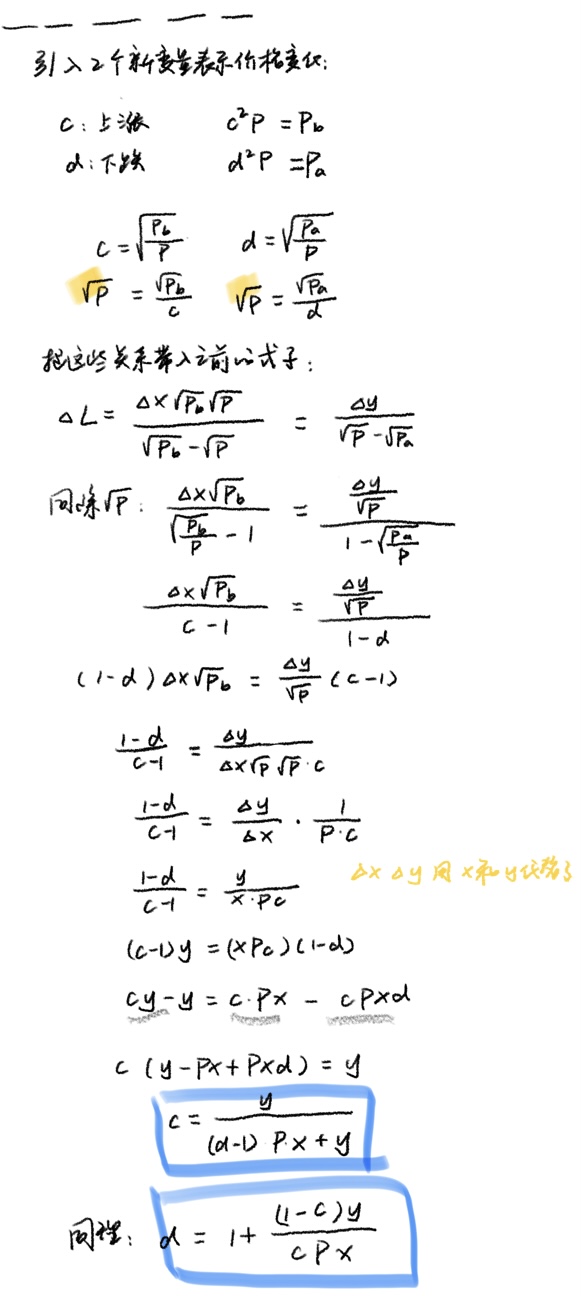 引入2个新变量表示价格变化:
c: 上涨 c²P = Pb
d: 下跌 d²P = Pa
c = √(Pb/P) d = √(Pa/P)
√P = √Pb/c √P = √Pa/d
把这些关系带入之前的式子:
ΔL = Δx√Pb√P/(√Pb - √P) = Δy/(√P - √Pa)
同除√P: Δx√Pb/(√(Pb/P) - 1) = (Δy/√P)/(1 - √(Pa/P))
Δx√Pb/(c - 1) = (Δy/√P)/(1 - d)
(1-d)Δx√Pb = Δy/√P (c-1)
(1-d)/(c-1) = Δy/(Δx√P√P·c)
(1-d)/(c-1) = Δy/Δx · 1/(P·c)
(1-d)/(c-1) = y/(x·Pc) Δx Δy 用 x和y代替了
(c-1)y = (xPc)(1-d)
cy - y = c·Px - cPxd
c(y - Px + Pxd) = y
c = y/((d-1)P·x + y)
同理: d = 1 + (1-c)y/(cPx)